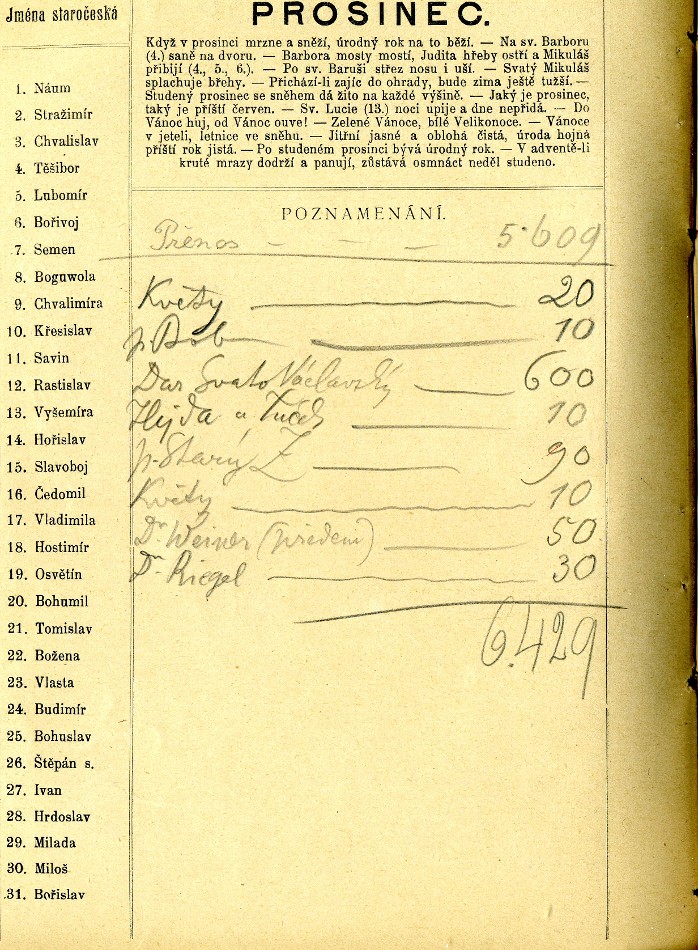 Jména staročeská
1. Náum
2. Stražimír
3. Chvalislav
4. Těšibor
5. Lubomír
6. Bořivoj
7. Semen
8. Boguwola
9. Chvalimíra
10. Křesislav
11. Savin
12. Rastislav
13. Vyšemíra
14. Hořislav
15. Slavoboj
16. Čedomil
17. Vladimila
18. Hostimír
19. Osvětín
20. Bohumil
21. Tomislav
22. Božena
23. Vlasta
24. Budimír
25. Bohuslav
26. Štěpán s.
27. Ivan
28. Hrdoslav
29. Milada
30. Miloš
31. Bořislav
PROSINEC.
Když v prosinci mrzne a sněží, úrodný rok na to běží. — Na sv. Barboru
(4.) saně na dvoru. — Barbora mosty mostí, Judita hřeby ostří a Mikuláš
přibijí (4., 5., 6.). — Po sv. Baruši střez nosu i uší. — Svatý Mikuláš
splachuje břehy. — Přichází-li zajíc do ohrady, bude zima ještě tužší. —
Studený prosinec se sněhem dá žito na každé výšině. — Jaký je prosinec,
taký je příští červen. — Sv. Lucie (13.) noci upije a dne nepřidá. — Do
Vánoc hůj, od Vánoc ouve! — Zelené Vánoce, bílé Velikonoce. — Vánoce
v jeteli, letnice ve sněhu. — Jitřní jasné a obloha čistá, úroda hojná
příští rok jistá. — Po studeném prosinci bývá úrodný rok. — V adventě-li
kruté mrazy dodrží a panují, zůstává osmnáct neděl studeno.
POZNAMENÁNÍ.
Přenos — — — 5·609
Květy — 20
p. — 10
Dar Svato Václavský — 600
Hejda a Tuček — 10
p. Starý Z — 90
Květy — 10
Dr Weiner (předem) — 50
Dr Riegel — 30
6.429